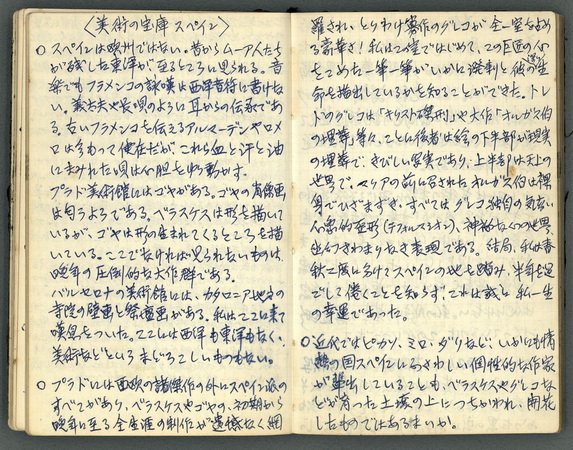 〈美術の宝庫 スペイン〉
○スペインは欧州ではない。昔からムーア人たち
が残した東洋が至るところに見られる。音
楽でもフラメンコの詠嘆は西洋音符に書けな
い。義太夫や長唄のように耳からの伝承であ
る。古いフラメンコを伝えるアルマーデンやロメ
ロは今もって健在だが、これら血と汗と油
にまみれた唄は心胆をゆり動かす。
プラド美術館にはゴヤがある。ゴヤの肖像画
は匂うようである。ベラスケスは形を描いて
いるが、ゴヤは形の生まれてくるところを描
いている。ここでなければ見られないものは、
晩年の圧倒的な大作群である。
バルセロナの美術館には、カタロニア地方の
寺院の壁画と祭壇画がある。私はここに来て
嘆息をついた。ここには西洋も東洋もなく、
美術などというまじろこしいものもない。
○プラドには西欧の諸傑作の外にスペイン派の
すべてがあり、ベラスケスやゴヤの、初期から
晩年に至る全生涯の制作が遺憾なく網
羅され、とりわけ寡作のグレコが全一室を占め
る豪華さ!私はこの室ではじめて、この巨匠の心
をこめた一筆一筆がいかに溌剌と彼の生
命を描出しているかを知ることができた。トレ
ドのグレコは「キリスト磔刑」や大作「オルガス伯
の埋葬」等々、ことに後者は絵の下半部が現実
の埋葬で、きびしい写実であり、上半部は天上の
世界で、マリアの前に召されたオルガス伯は裸
身でひざまずき、すべてはグレコ独自の気高い
心霊的歪形(デフォルマション)、神秘な幻の世界、
幽幻きわまりなき表現である。結局、私は春
秋二度に分けてスペインの地を踏み、半年を過
ごして倦くことを知らず、これは誠に私一生
の幸運であった。
○近代ではピカソ、ミロ、ダリなど、いかにも情
熱の国スペインにふさわしい個性的な作家
が輩出していることも、ベラスケスやグレコな
どが育った土壌の上につちかわれ、開花
したものではあるまいか。